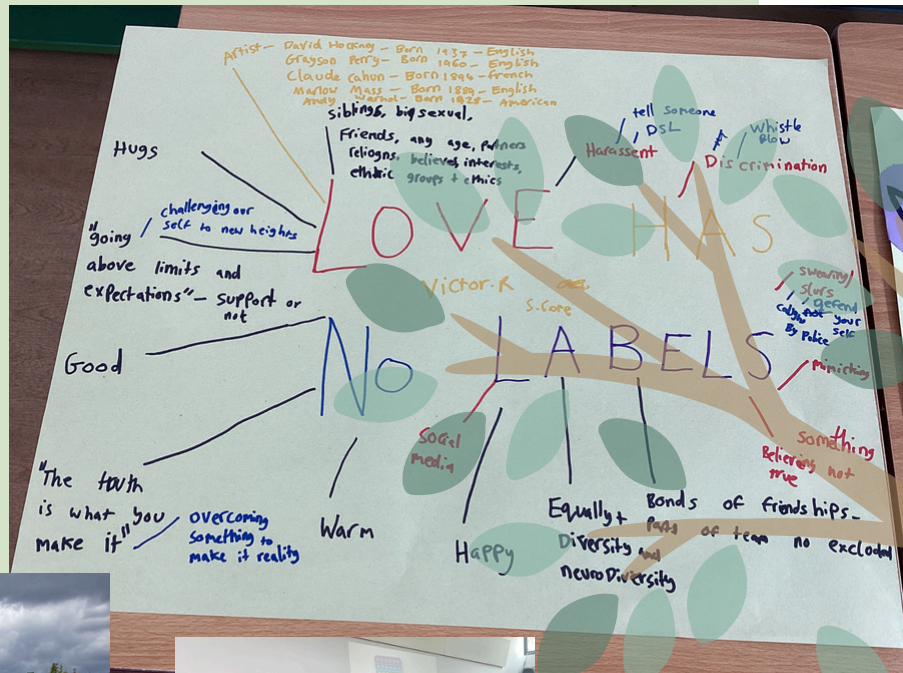 Artist - David Hockney - Born 1937 - English
Grayson Perry - Born 1960 - English
Claude Cahun - Born 1894 - French
Marlow Mass - Born 1889 - English
Andy Warhol - Born 1928 - American
siblings, bigsexual,
Friends, any age, partners
religions, believes interests,
ethnic groups + ethics
tell someone
DSL
Harassent
Whistle
Blow
Discrimination
Hugs
challenging our
self to new heights
"going
above limits and
expectations" - support or
not
LOVE HAS
Victor.R
S.Core
swearing/
slurs
defend
not your
self
By Police
mimicking
NO LABELS
Good
Social
media
something
Believing not
true
"The touth
is what you
make it"
overcoming
something to
make it reality
Warm
Happy
Equally +
Diversity and
neuroDiversity
Bonds of friendships -
Parts of team no excloded